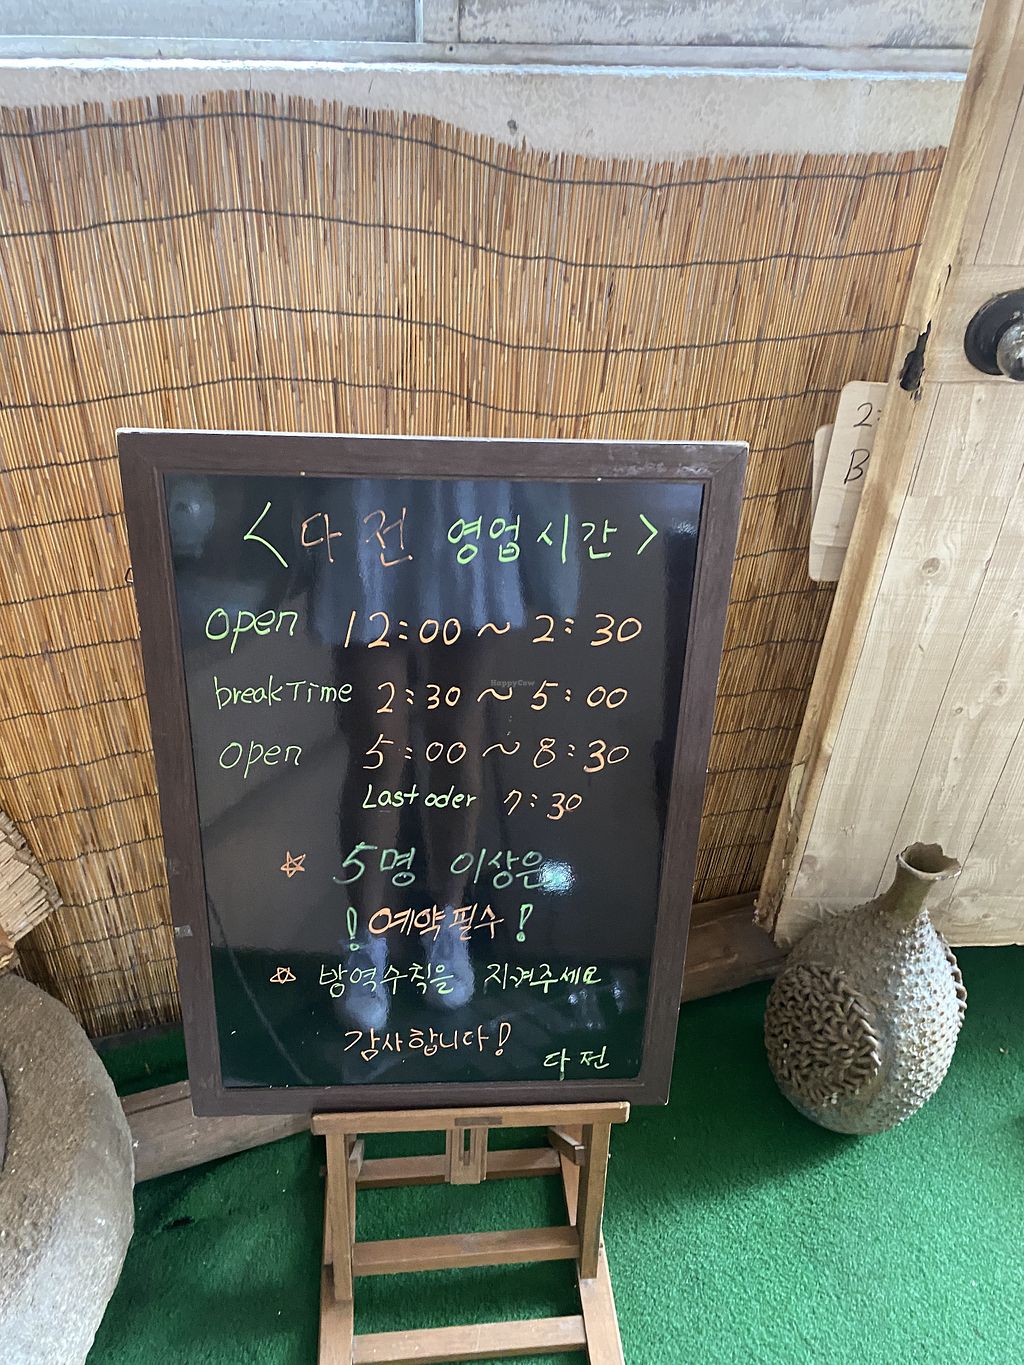 <다전 영업시간>
open 12:00 ~ 2:30
breakTime 2:30 ~ 5:00
open 5:00 ~ 8:30
Last oder 7:30
☆ 5명 이상은
! 예약필수 !
☆ 방역수칙을 지켜주세요
감사합니다!
다전
2:
B
HappyCow